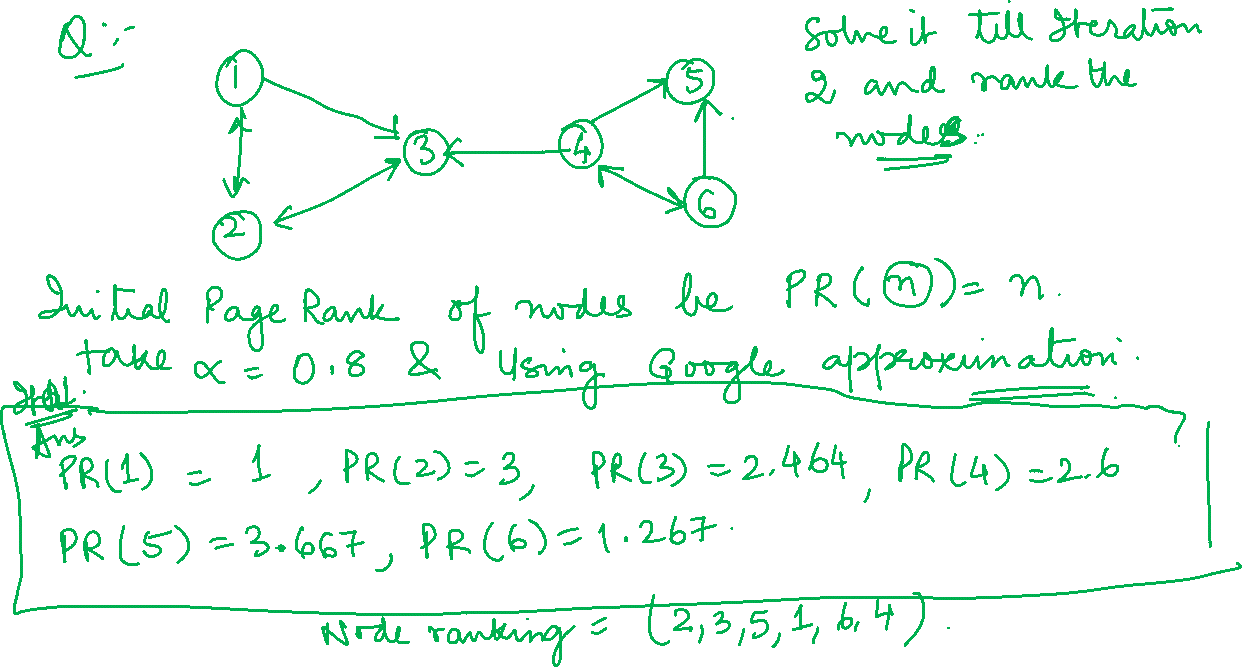 Q:-
Solve it till Iteration
2 and rank the
nodes.
1
5
3
4
2
6
Initial Page Rank of nodes be PR(n) = n.
take α = 0.8 & Using Google approximation.
Ans
PR(1) = 1, PR(2) = 3, PR(3) = 2.464, PR(4) = 2.6
PR(5) = 3.667, PR(6) = 1.267.
Node ranking = (2,3,5,1,6,4).